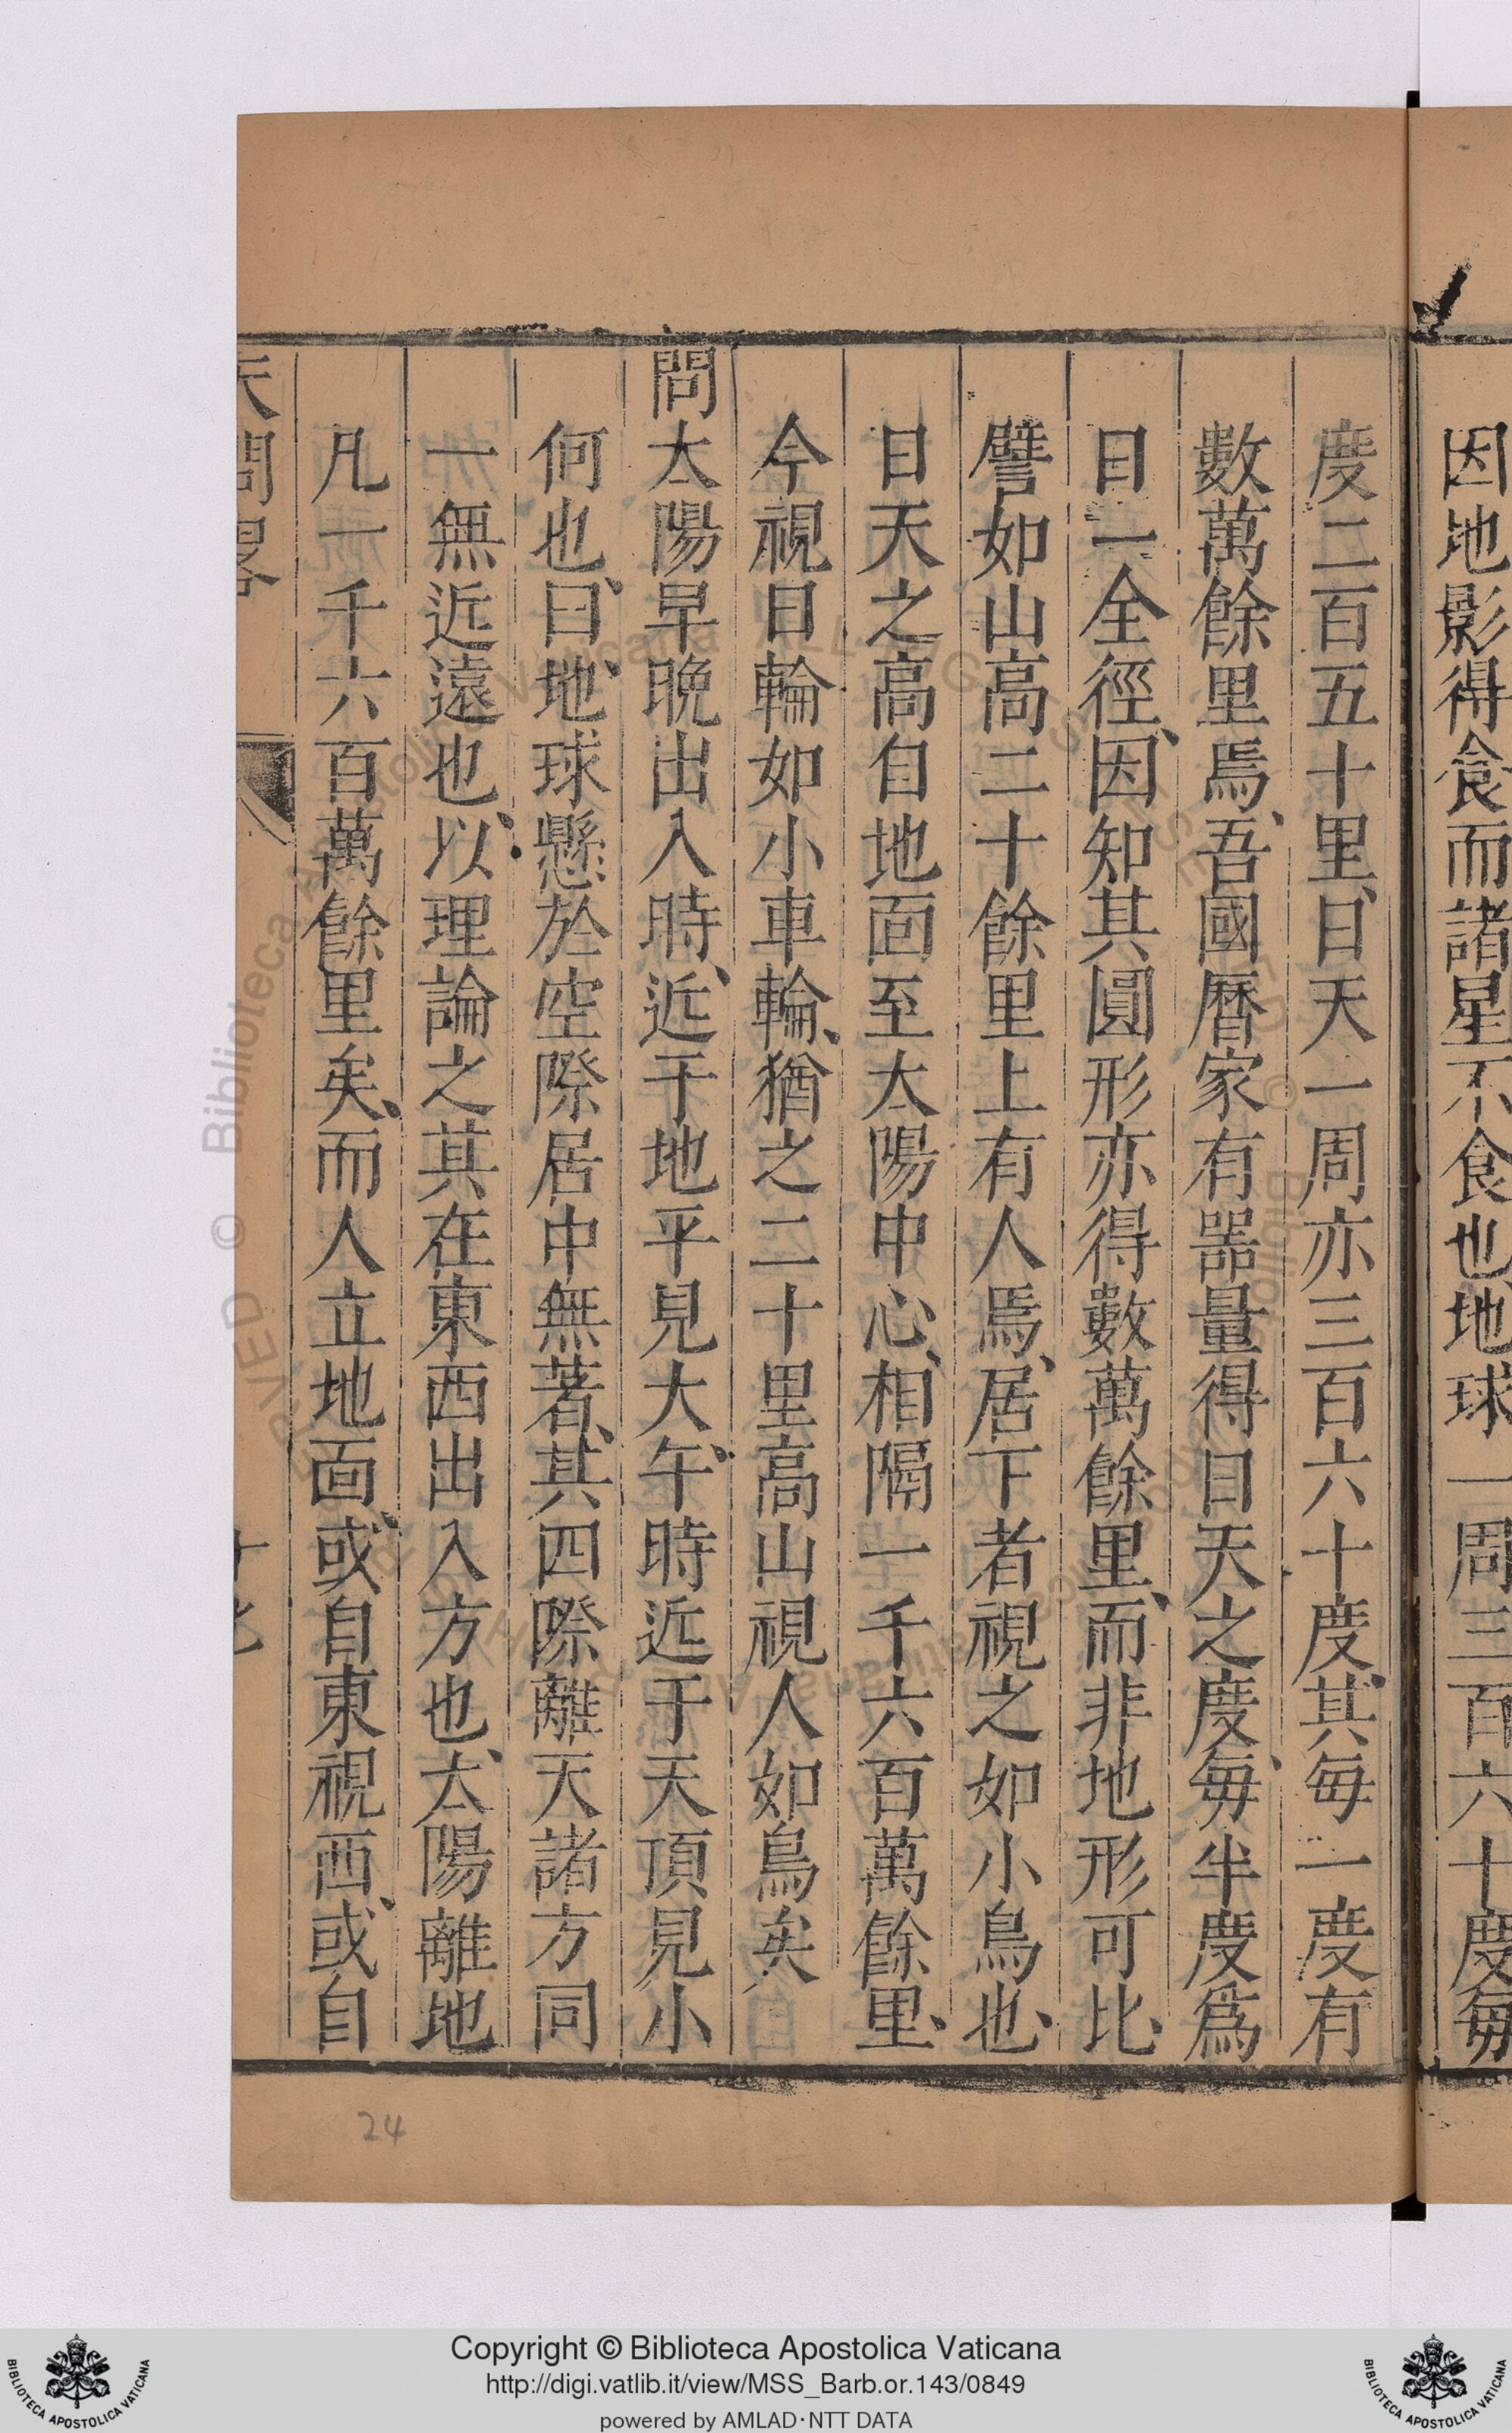 因地影得食而諸星不食也地球一周三百六十度每
度二百五十里、日天一周亦三百六十度、其每一度有
數萬餘里焉、吾國曆家有器量得日天之度、每半度爲
日一全徑、因知其圓形亦得數萬餘里、而非地形可比、
譬如山高二十餘里上有人焉、居下者視之如小鳥也、
日天之高自地面至太陽中心、相隔一千六百萬餘里、
今視日輪如小車輪、猶之二十里高山視人如鳥矣
問太陽早晚出入時、近于地平見大、午時近于天頂見小
何也、曰、地球懸於空際居中無著、其四際離天諸方同
一無近遠也、以理論之其在東西出入方也、太陽離地
凡一千六百萬餘里矣、而人立地面、或自東視西、或自
天問畧
十七
24
© Biblioteca Apostolica Vaticana
Copyright © Biblioteca Apostolica Vaticana
http://digi.vatlib.it/view/MSS_Barb.or.143/0849
powered by AMLAD·NTT DATA
BIBLIOTECA APOSTOLICA VATICANA
BIBLIOTECA APOSTOLICA VATICANA